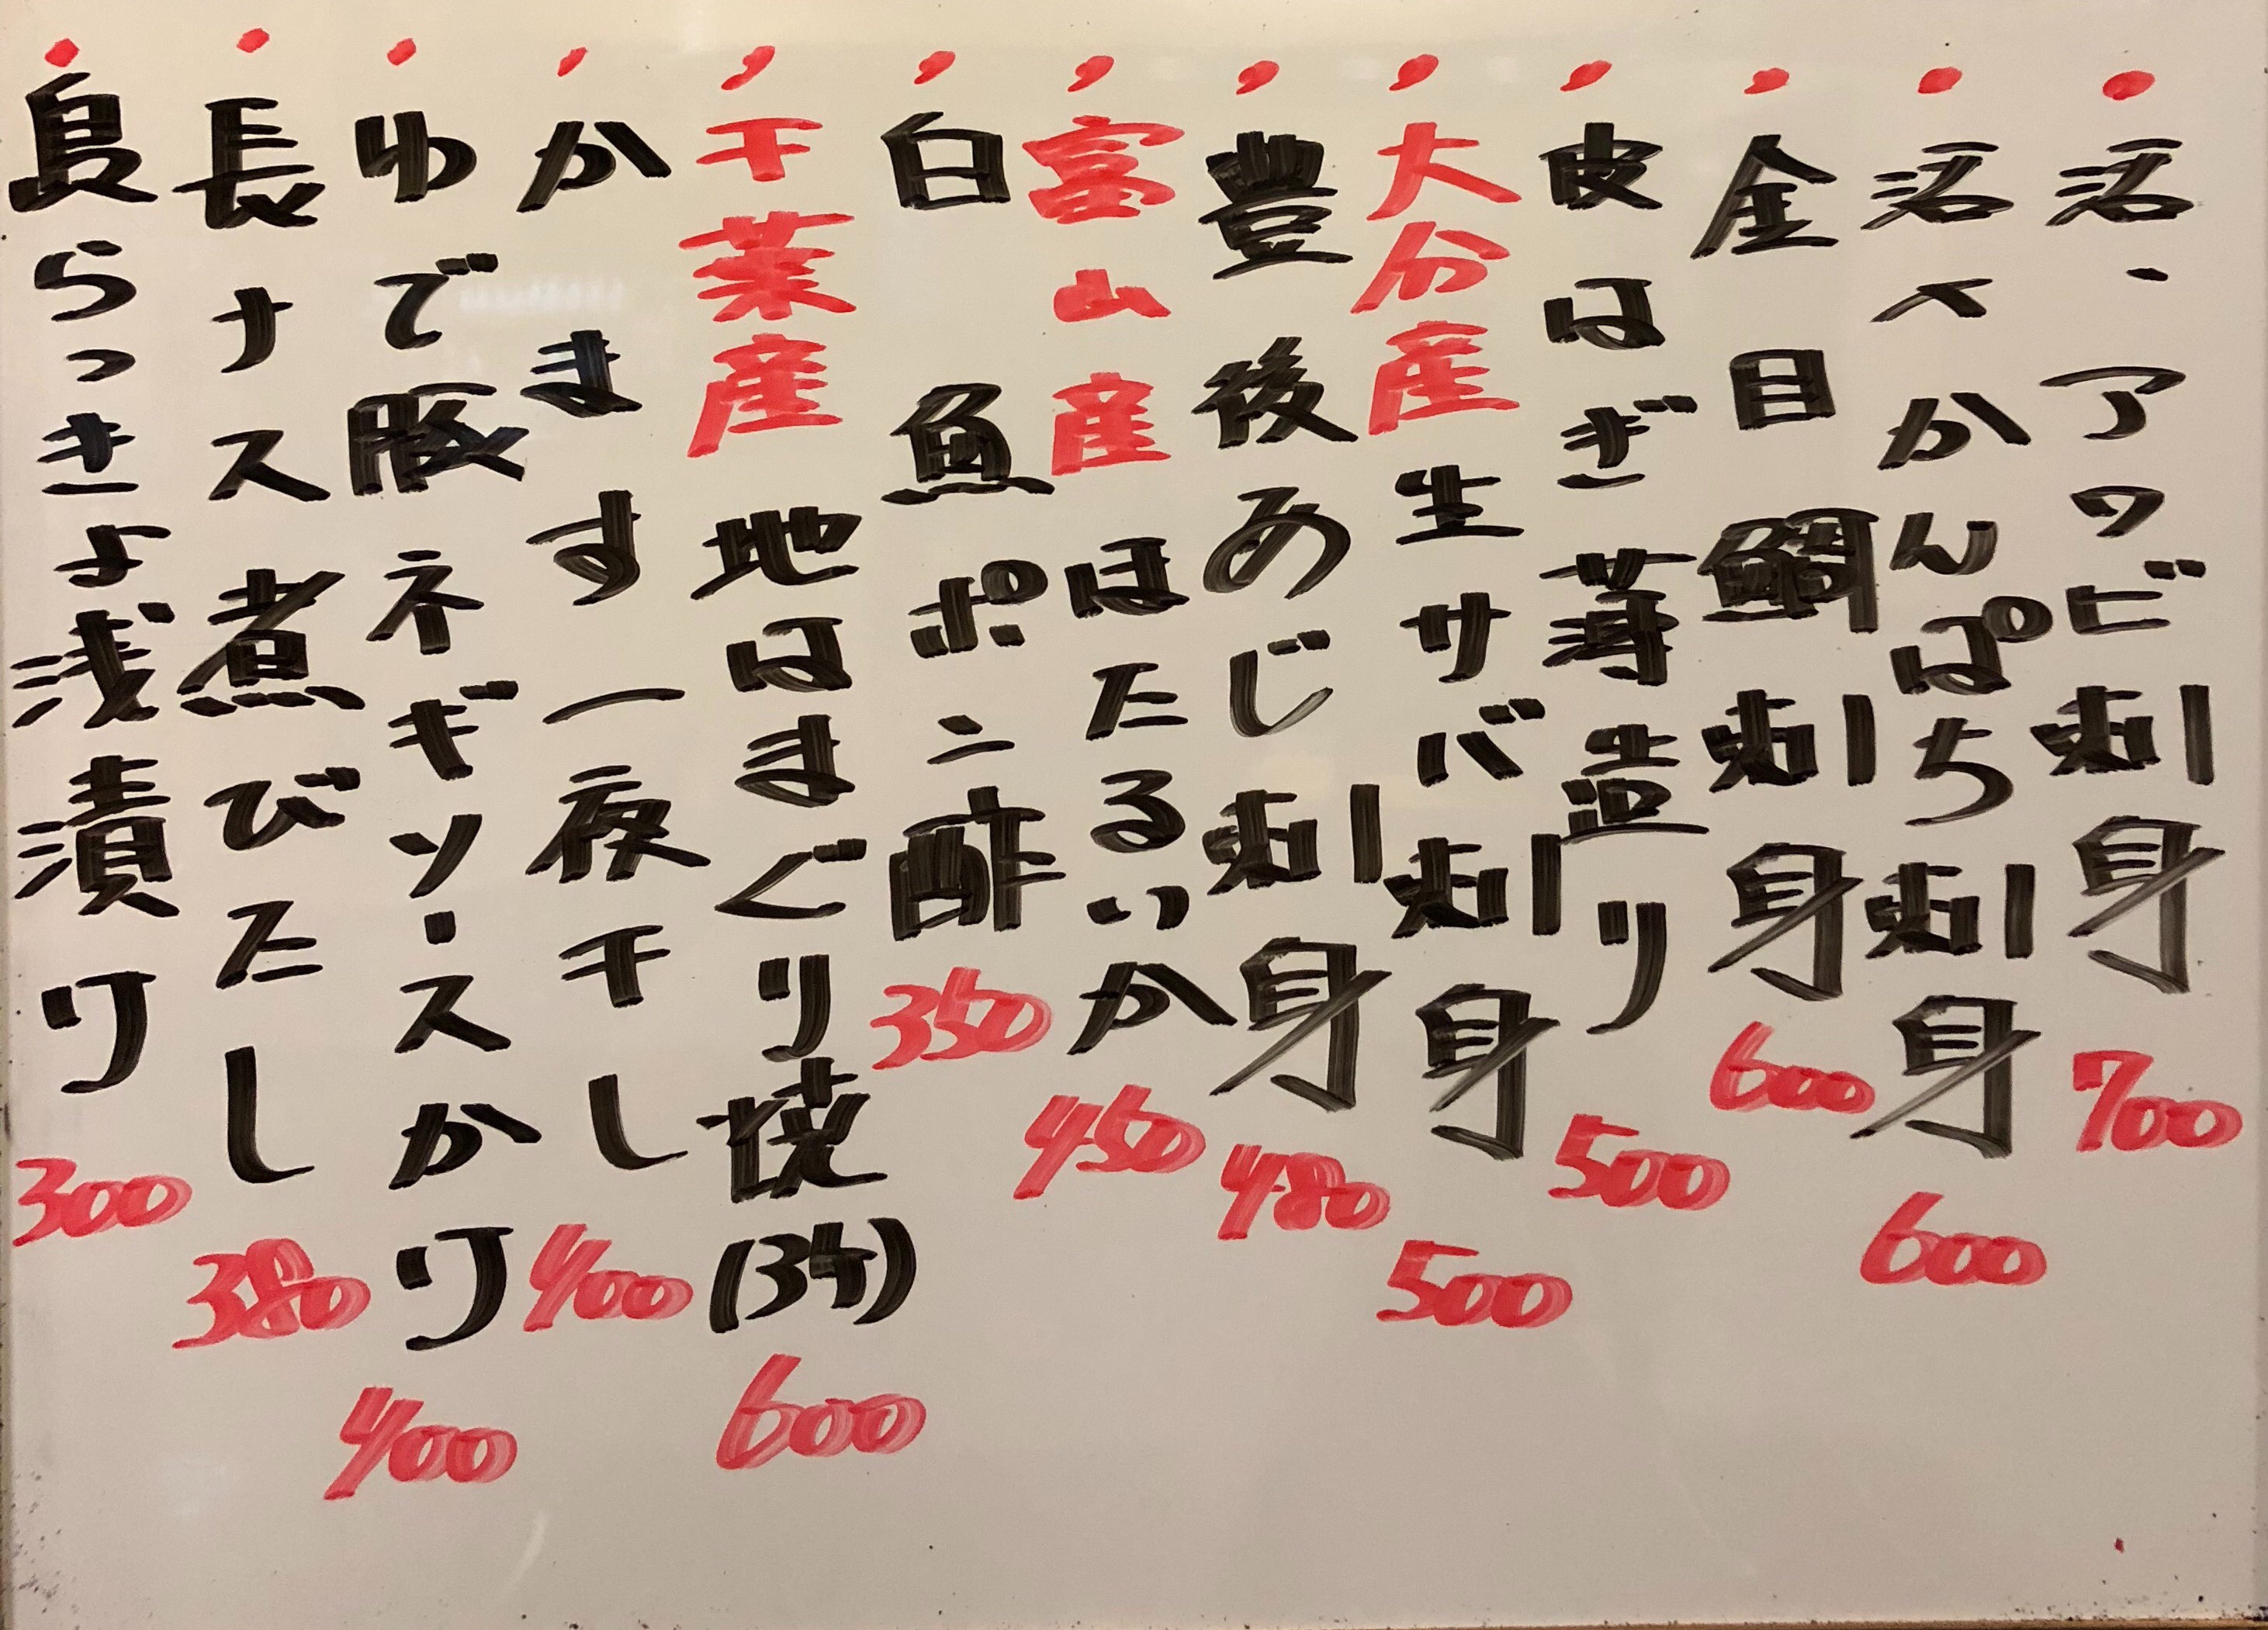 活、アワビ刺身 700
活〆かんぱち刺身 600
金目鯛刺身 600
皮はぎ薄造り 500
大分産生サバ刺身 500
豊後あじ刺身 480
富山産ほたるいか 450
白魚ポン酢 350
千葉産地はまぐり焼(3ケ) 600
かます一夜干し 400
ゆで豚ネギソースかけ 400
長ナス煮びたし 380
島らっきょ浅漬け 300